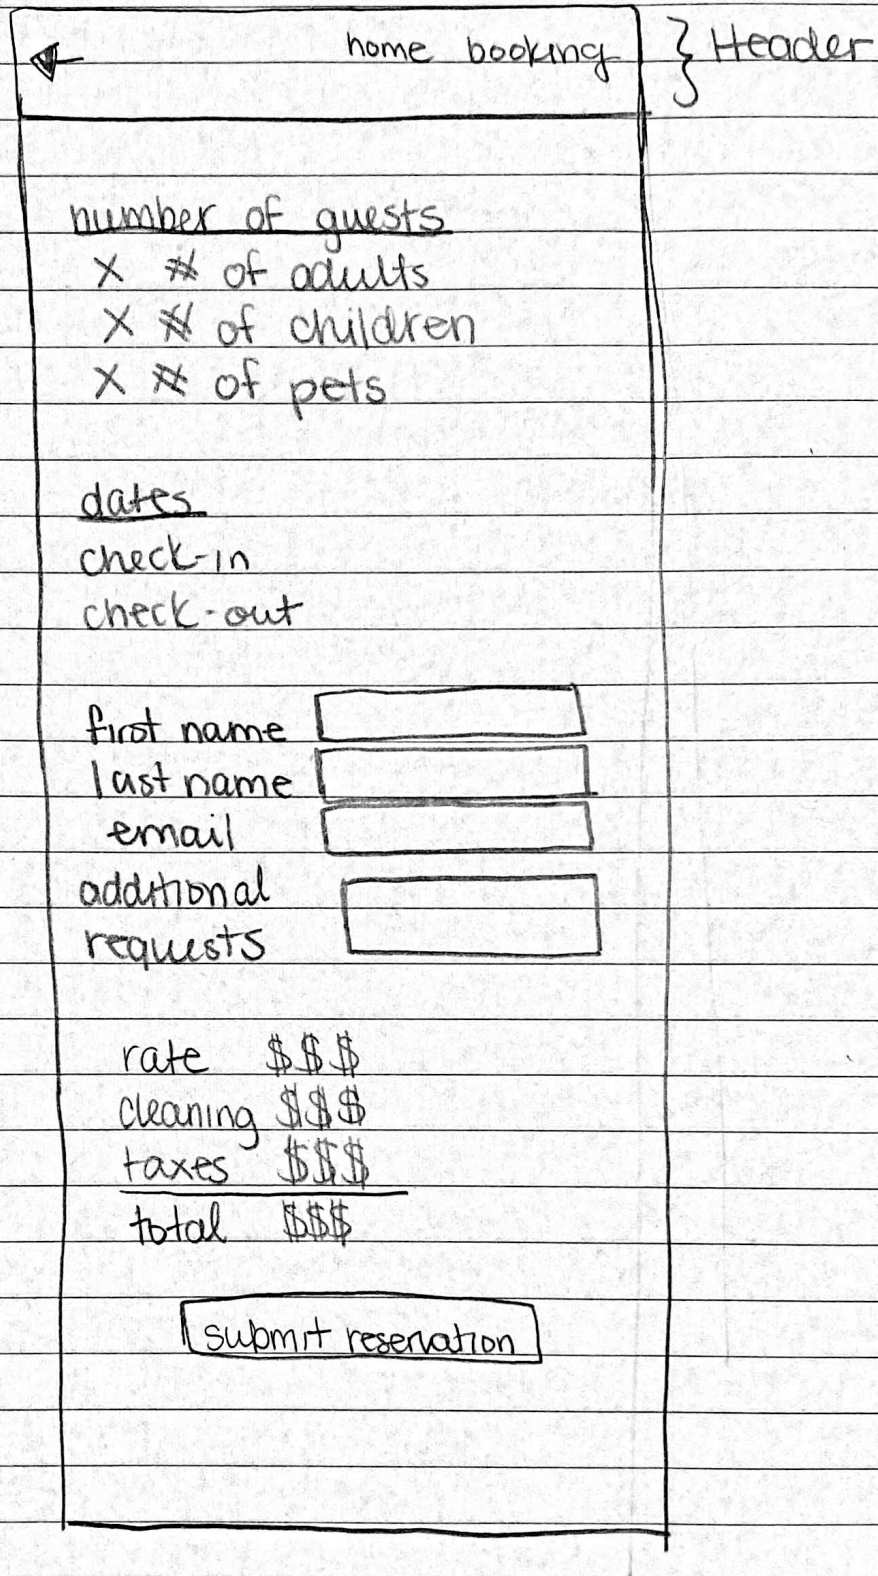 home booking } Header
number of guests
X # of adults
X # of children
X # of pets
dates
check-in
check-out
first name
last name
email
additional
requests
rate $$$
cleaning $$$
taxes $$$
total $$$
submit reservation